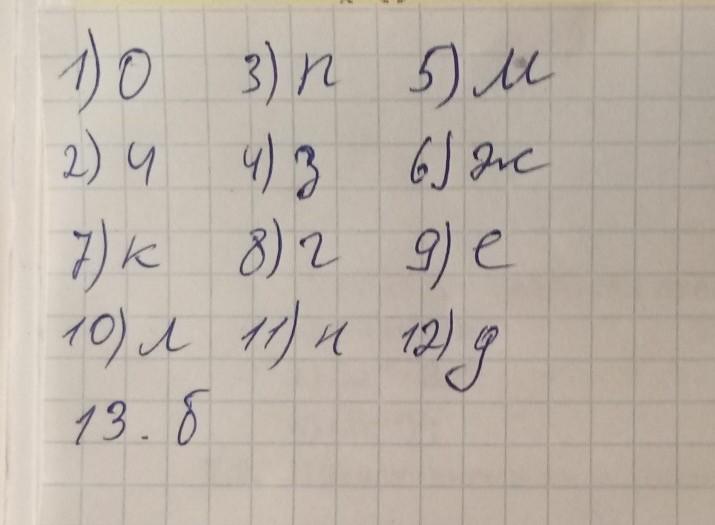 1) О 3) п 5) М
2) Ч 4) з 6) ж
7) к 8) г 9) е
10) л 11) н 12) д
13. б